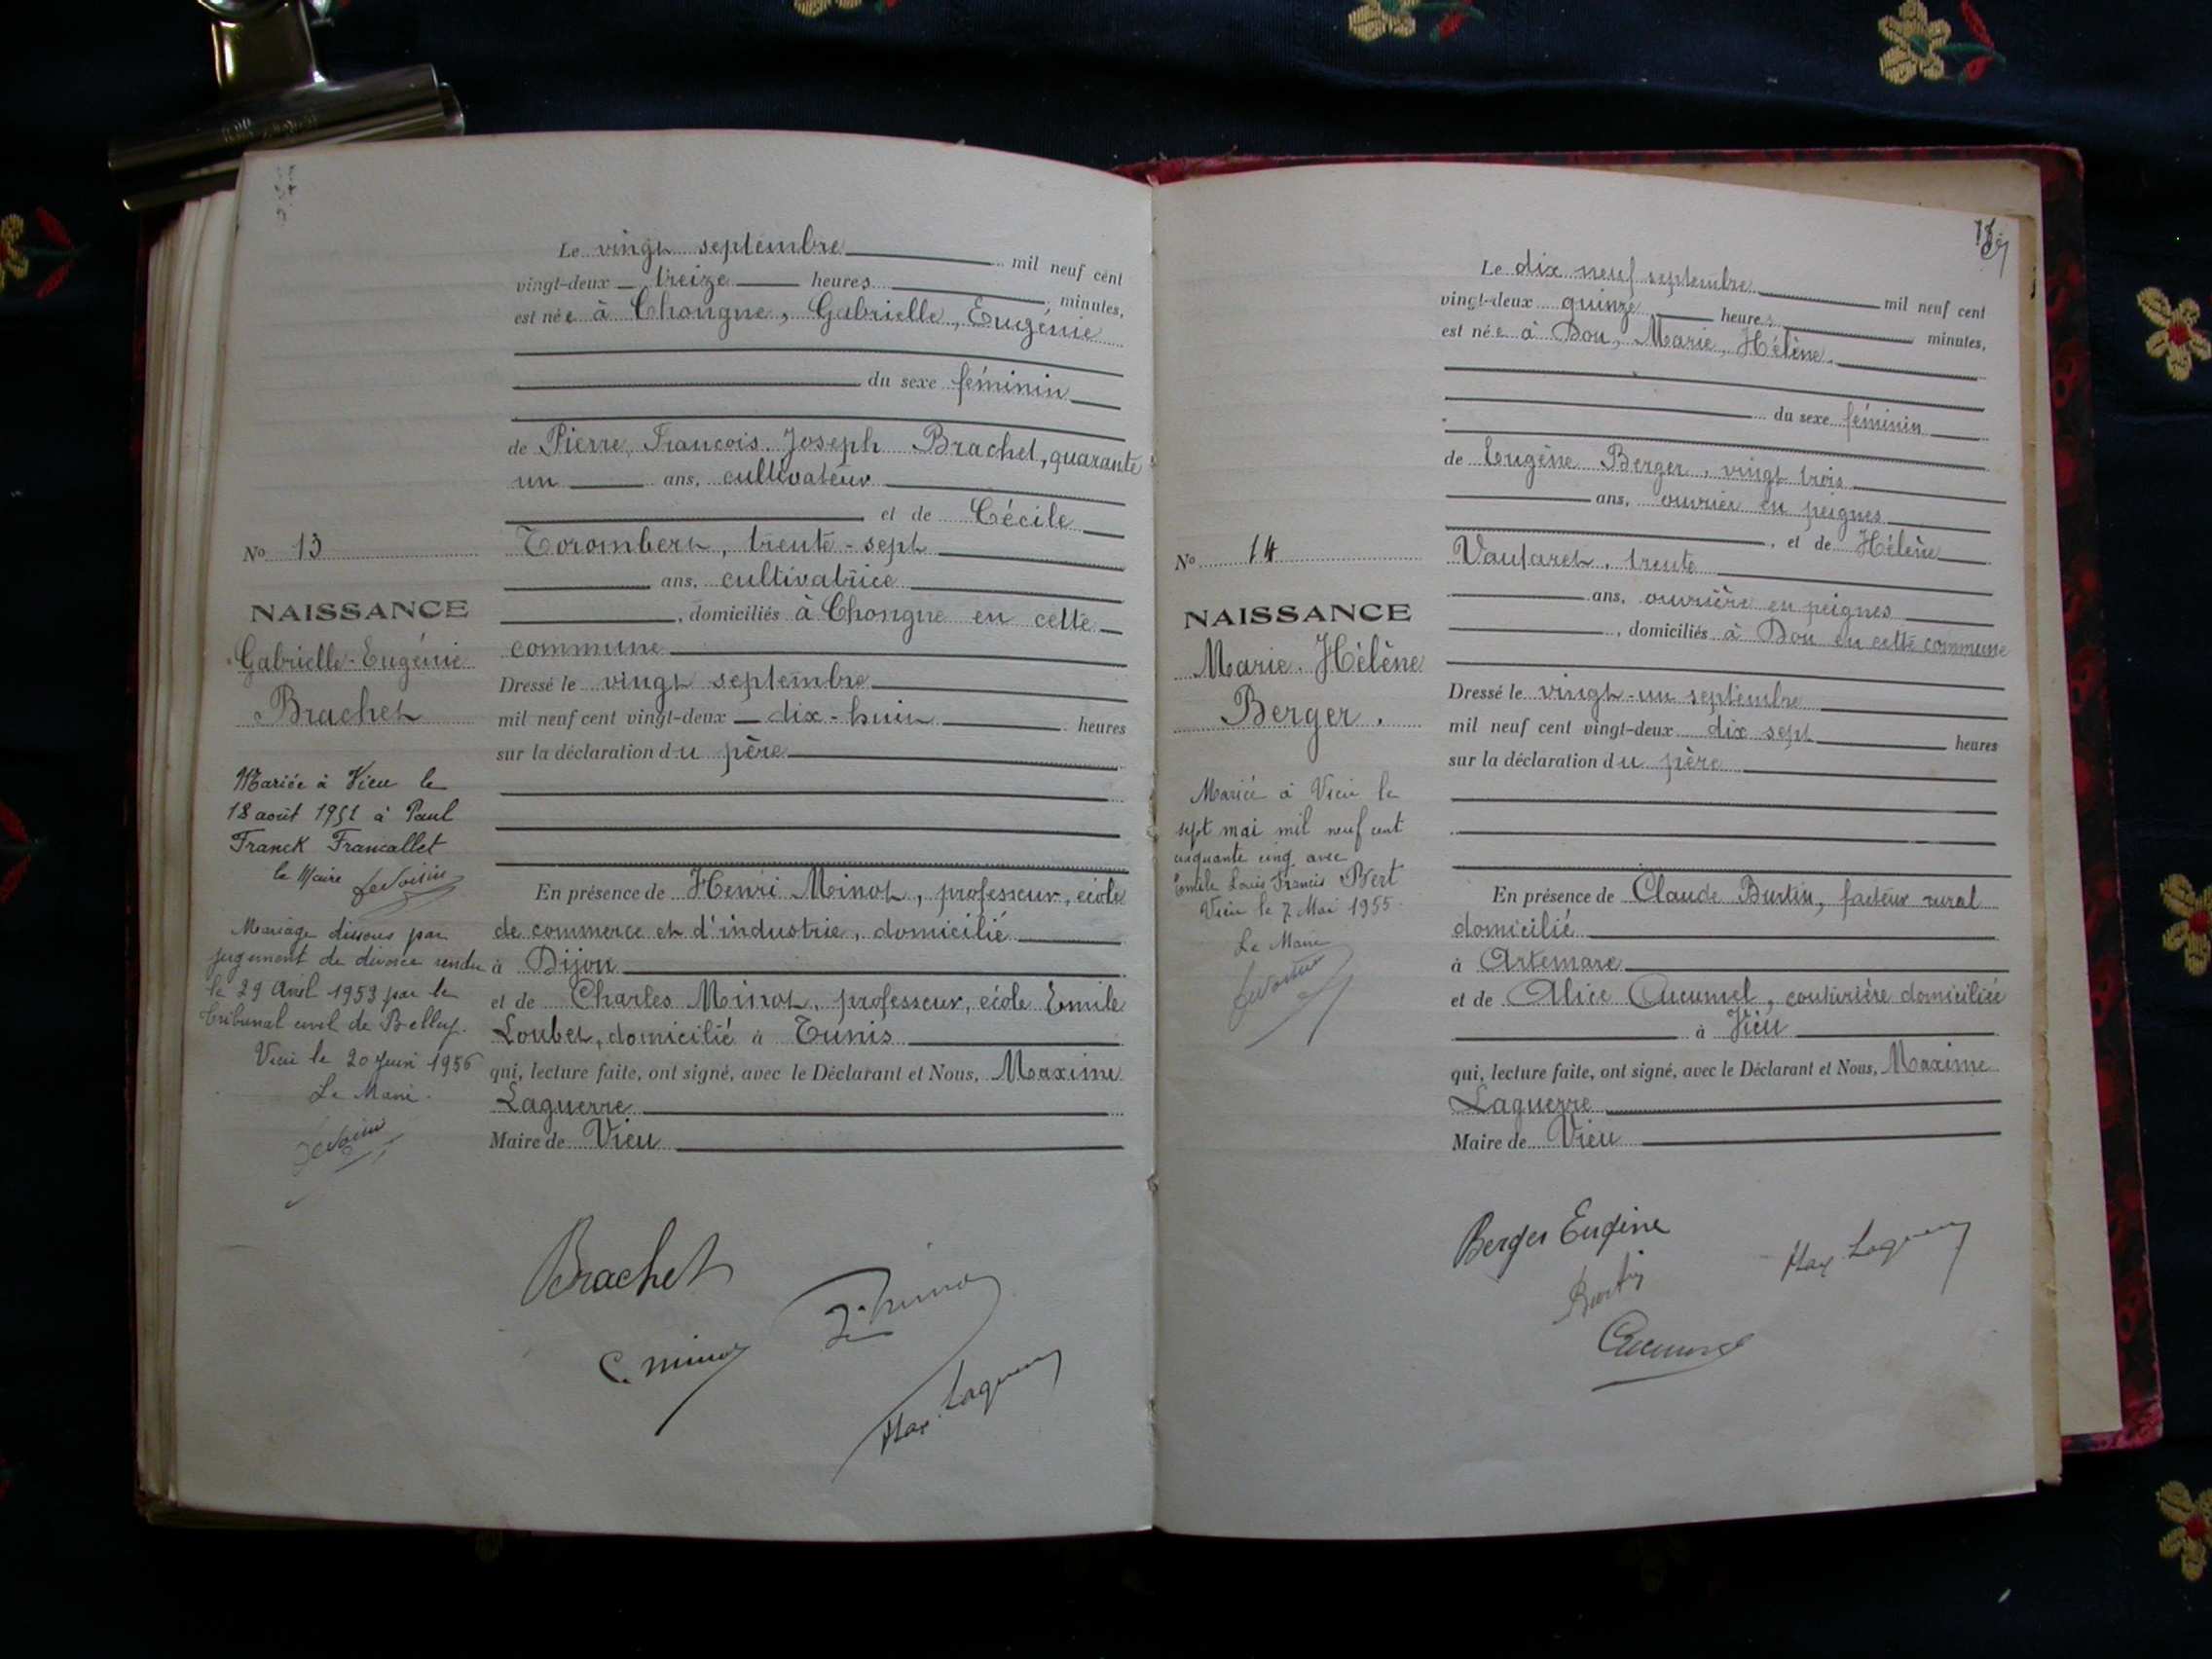 Le vingt septembre mil neuf cent
vingt-deux treize heures minutes,
est née à Chongne, Gabrielle, Eugénie
du sexe féminin
de Pierre, Francois, Joseph Brachet, quarante
un ans, cultivateur
et de Cécile
Torombert, trente-sept
ans, cultivatrice
, domiciliés à Chongne en cette
commune
Dressé le vingt septembre
mil neuf cent vingt-deux dix-huit heures
sur la déclaration du père
En présence de Henri Minot, professeur, ecole
de commerce et d'industrie, domicilié
à Dijon
et de Charles Minot, professeur, ecole Emile
Loubet, domicilié à Tunis
qui, lecture faite, ont signé, avec le Déclarant et Nous, Maxime
Laguerre
Maire de Vieu
No 13
NAISSANCE
Gabrielle-Eugénie
Brachet
Mariée à Vieu le
18 août 1951 à Paul
Franck Francallet
le Maire
Mariage dissous par
jugement de divorce rendu
le 29 Avril 1953 par le
tribunal civil de Belley.
Vieu le 20 Juin 1956
Le Maire.
Brachet
C. Minot
Max Laguerre
Le dix neuf septembre mil neuf cent
vingt-deux quinze heures minutes,
est née à Don, Marie, Hélène
du sexe féminin
de Eugène Berger, vingt trois
ans, ouvrier en peignes
, et de Hélène
Vaufaret, trente
ans, ouvrière en peignes
, domiciliés à Don en cette commune
Dressé le vingt-un septembre
mil neuf cent vingt-deux dix sept heures
sur la déclaration du père
En présence de Claude Burtin, facteur rural
domicilié
à Artemare
et de Alice Cucumel, couturière domiciliée
à Vieu
qui, lecture faite, ont signé, avec le Déclarant et Nous, Maxime
Laguerre
Maire de Vieu
No 14
NAISSANCE
Marie-Hélène
Berger.
Mariée à Vieu le
sept mai mil neuf cent
cinquante cinq avec
Emile Louis Francis Bert
Vieu le 7 Mai 1955
Le Maire
Berger Eugène
Burtin
Max Laguerre
Cucumel